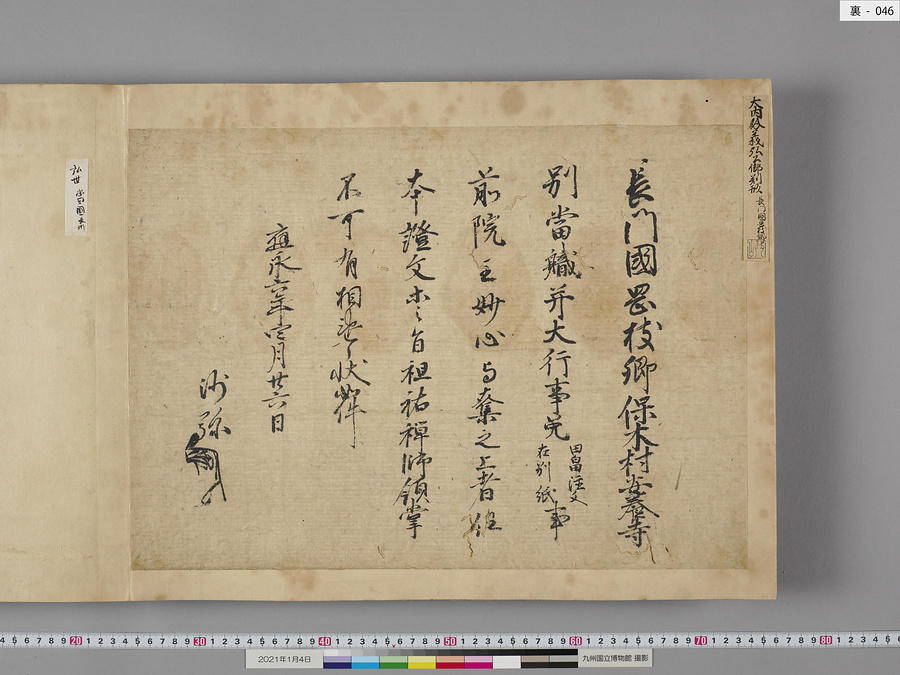 裏 - 046
大内殿義弘御判歟 長門國
長門國罡枝郷保木村安養寺
別當職并大行事免 田畠注文
在別紙 事
前院主妙心与奪之上者任
本證文等旨祖祐禅師領掌
不可有相違之状如件
應永六年壱月廿六日
沙弥
弘世 當国
2021年1月4日
九州国立博物館 撮影